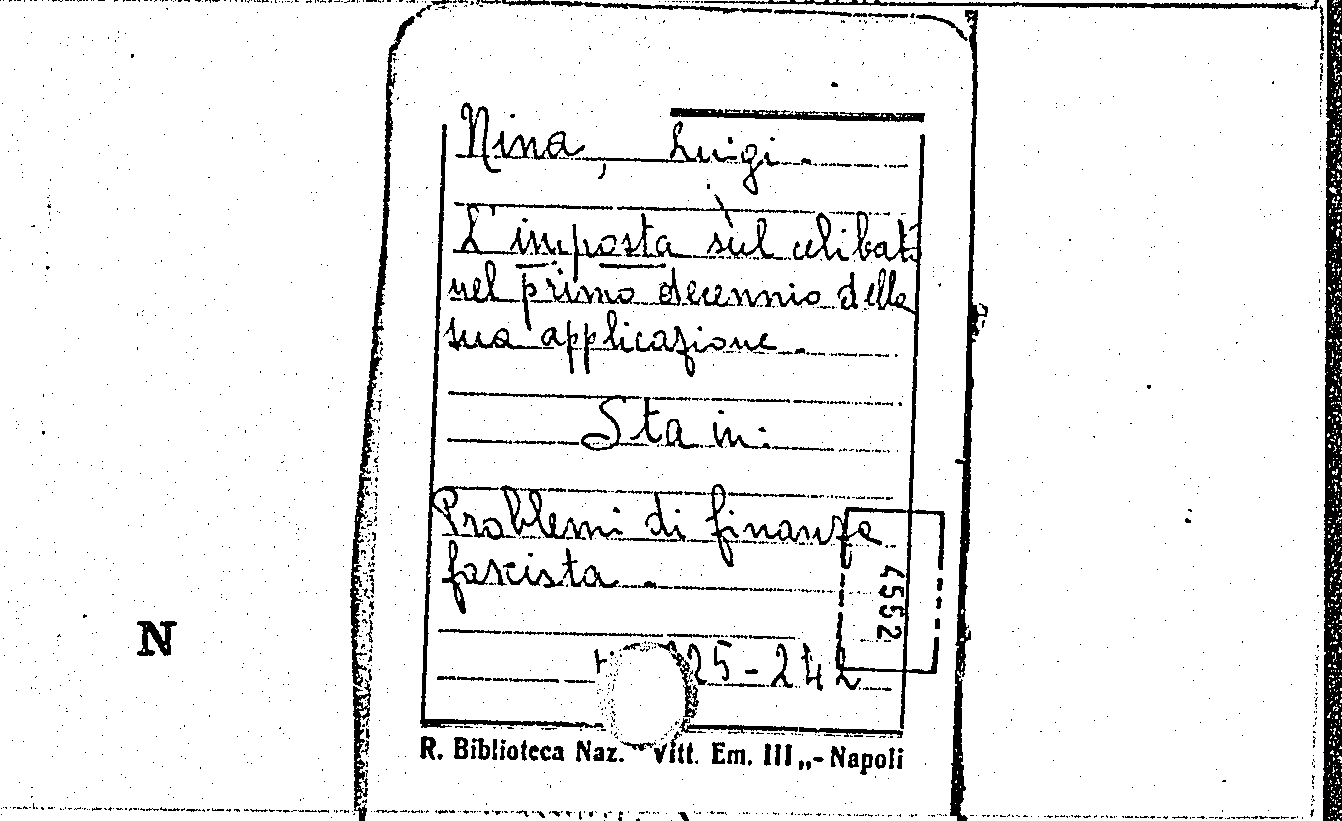 Nina, Luigi.
L'imposta sul celibato
nel primo decennio della
sua applicazione.
Sta in:
Problemi di finanza
fascista.
4552
25-242
N
R. Biblioteca Naz. Vitt. Em. III„- Napoli